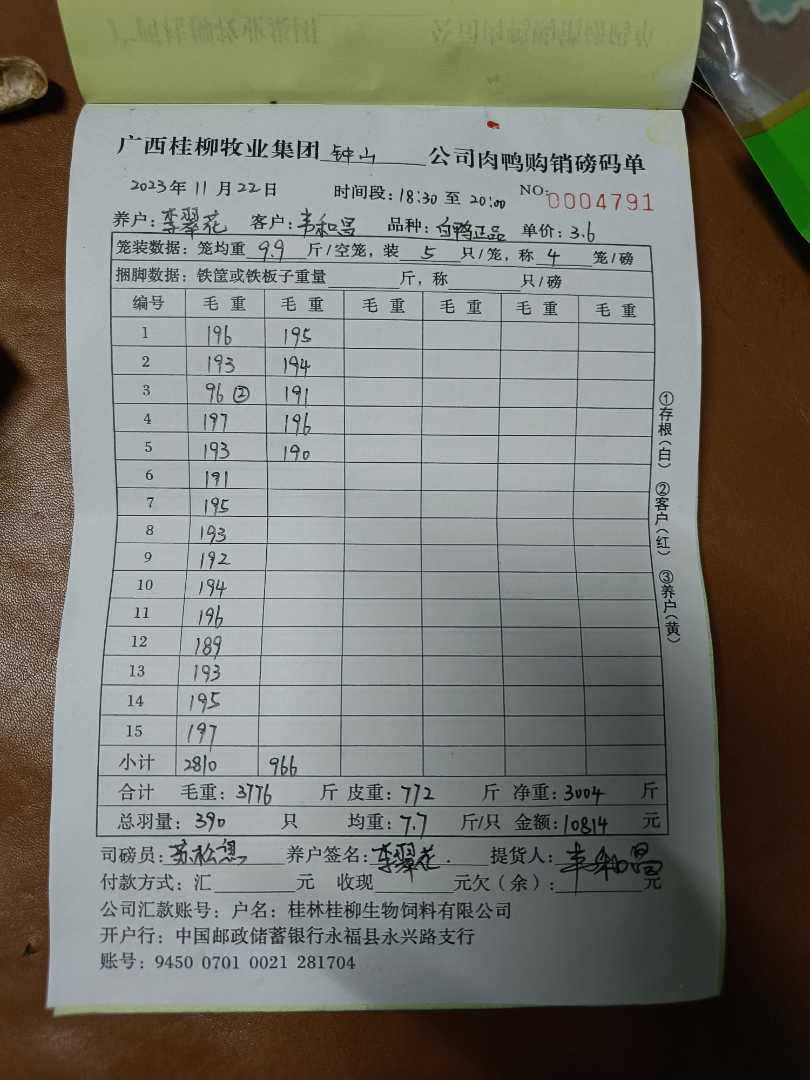 广西桂柳牧业集团 钟山 公司肉鸭购销磅码单
2023年 11月 22日 时间段: 18:30 至 20:00 NO: 0004791
养户: 李翠花 客户: 韦和昌 品种: 白鸭正品 单价: 3.6
笼装数据: 笼均重 9.9 斤/空笼, 装 5 只/笼, 称 4 笼/磅
捆脚数据: 铁筐或铁板子重量 斤, 称 只/磅
编号 毛重 毛重 毛重 毛重 毛重 毛重
1 196 195
2 193 194
3 96② 191
4 197 196
5 193 190
6 191
7 195
8 193
9 192
10 194
11 196
12 189
13 193
14 195
15 197
小计 2810 966
合计 毛重: 3776 斤 皮重: 772 斤 净重: 3004 斤
总羽量: 390 只 均重: 7.7 斤/只 金额: 10814 元
司磅员: 养户签名: 李翠花. 提货人: 韦和昌
付款方式: 汇 元 收现 元欠(余): 元
公司汇款账号: 户名: 桂林桂柳生物饲料有限公司
开户行: 中国邮政储蓄银行永福县永兴路支行
账号: 9450 0701 0021 281704
①存根(白) ②客户(红) ③养户(黄)